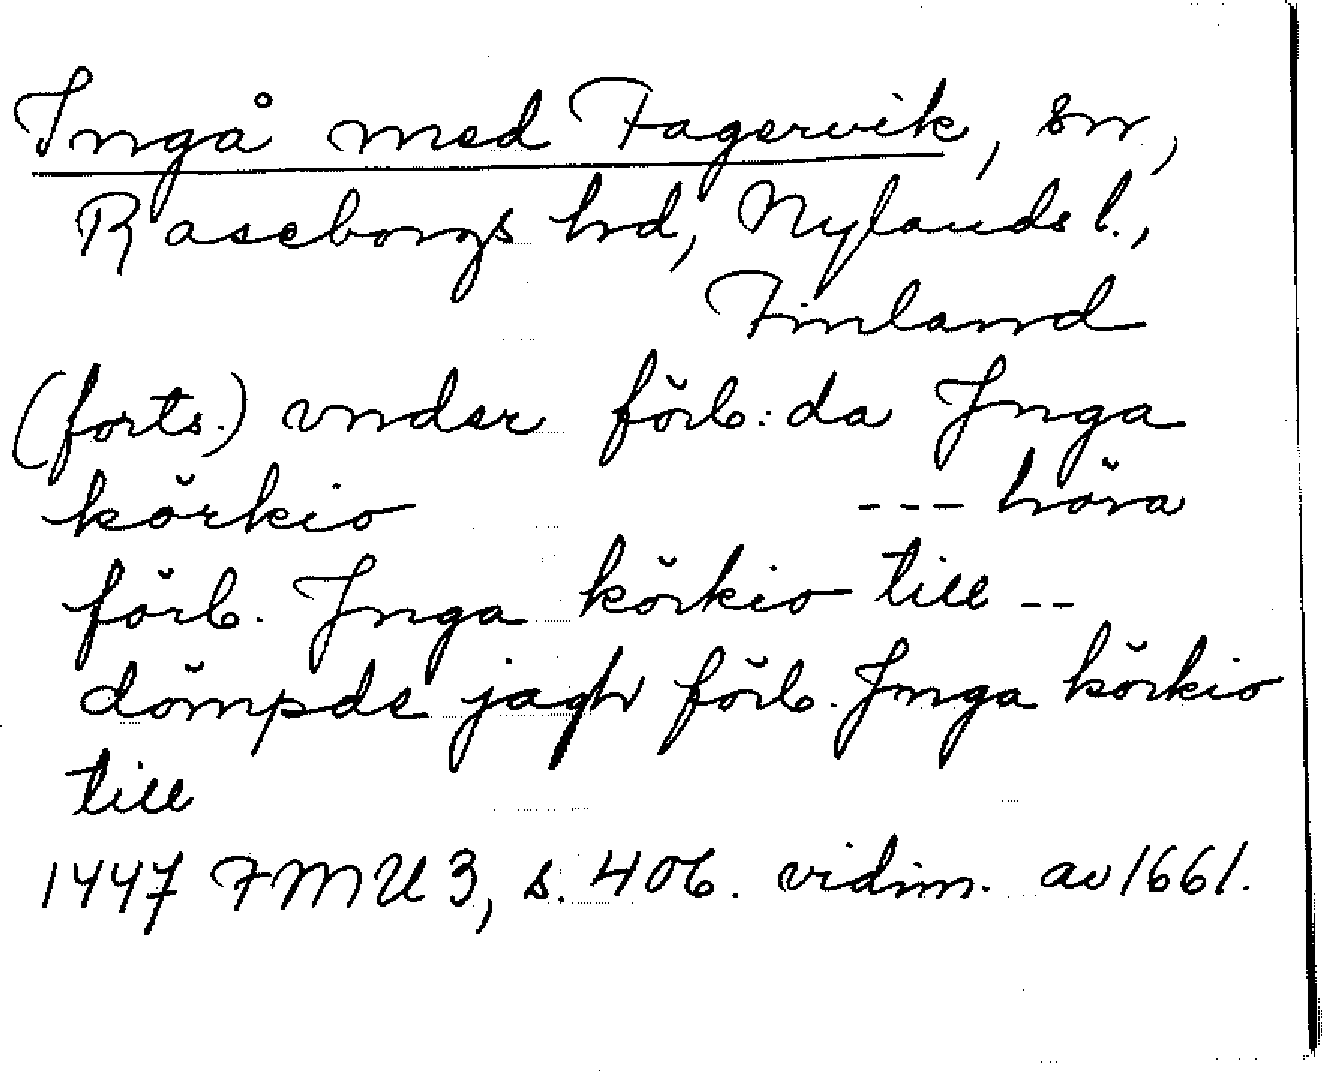 Ingå med Fagervik, sn,
Raseborgs hd, Nylands l.,
Finland
(forts.) vnder förb:da Jnga
körkio --- höra
förb. Jnga körkio till --
dömpde jagh förb. Jnga körkio
till
1447 FMU 3, s. 406. vidim. av 1661.